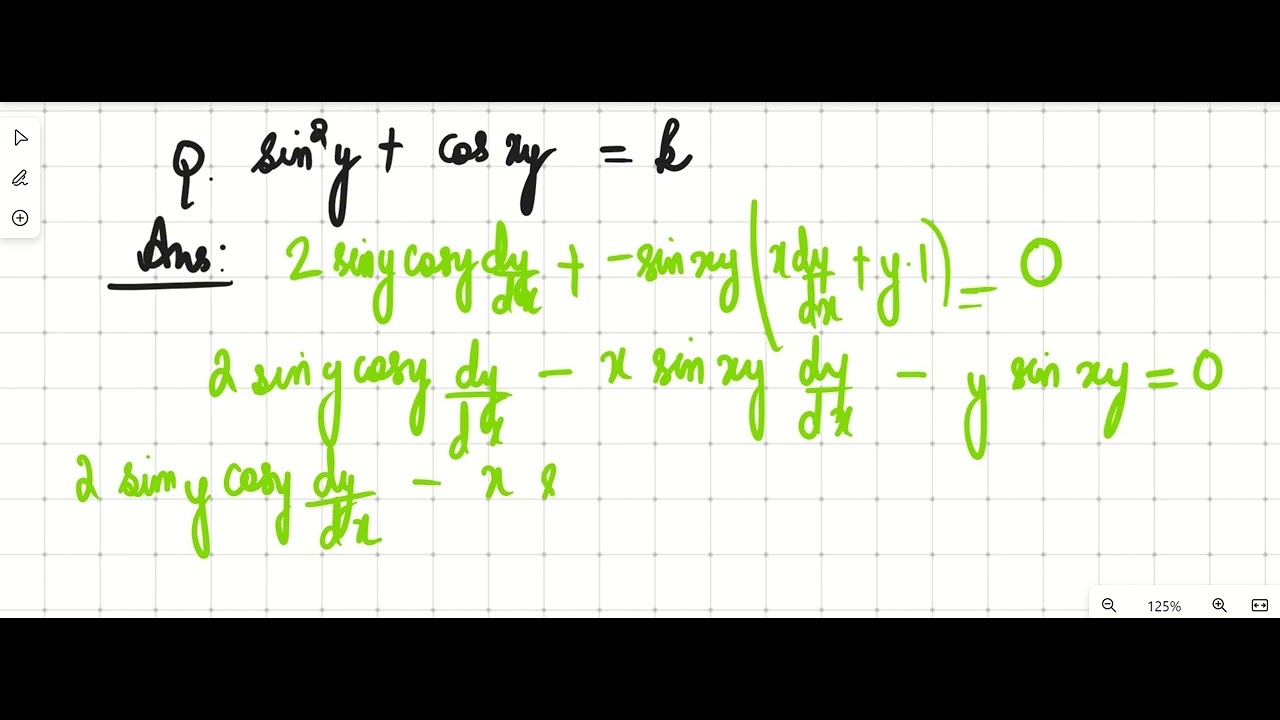 Q. sin²y + cos xy = k
Ans: 2 siny cosy dy/dx + -sin xy (x dy/dx + y·1) = 0
2 sin y cosy dy/dx - x sin xy dy/dx - y sin xy = 0
2 sin y cosy dy/dx - x s
125%